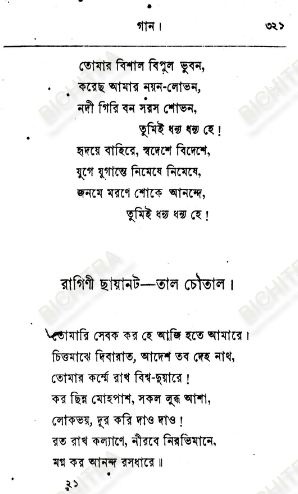 গান।
৩২১
তোমার বিশাল বিপুল ভুবন,
করেছ আমার নয়ন-লোভন,
নদী গিরি বন সরস শোভন,
তুমিই ধন্য ধন্য হে!
হৃদয়ে বাহিরে, স্বদেশে বিদেশে,
যুগে যুগান্তে নিমেষে নিমেষে,
জনমে মরণে শোকে আনন্দে,
তুমিই ধন্য ধন্য হে!
রাগিণী ছায়ানট—তাল চৌতাল।
তোমারি সেবক কর হে আজি হতে আমারে।
চিত্তমাঝে দিবারাত, আদেশ তব দেহ নাথ,
তোমার কর্ম্মে রাখ বিশ্ব-দুয়ারে!
কর ছিন্ন মোহপাশ, সকল লুব্ধ আশা,
লোকভয়, দূর করি দাও দাও!
রত রাখ কল্যাণে, নীরবে নিরভিমানে,
মগ্ন কর আনন্দ রসধারে॥
২১
BICHITRA